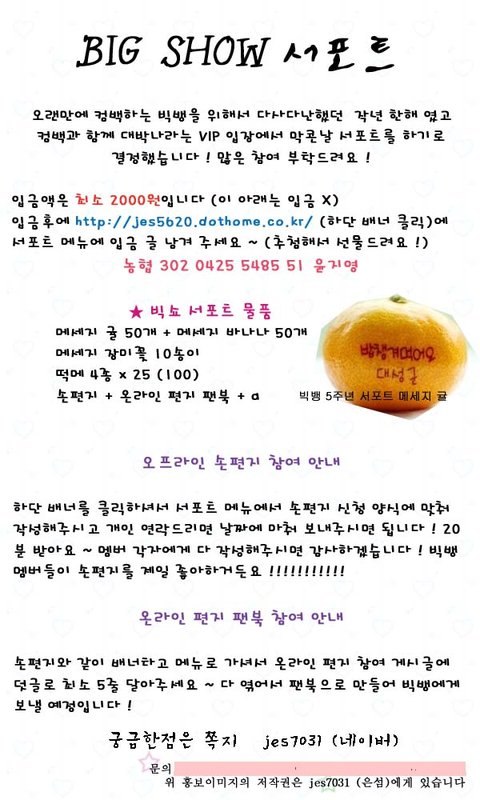 BIG SHOW 서포트
오랜만에 컴백하는 빅뱅을 위해서 다사다난했던 작년 한해 였고
컴백과 함께 대박나라는 VIP 입장에서 막콘날 서포트를 하기로
결정했습니다 ! 많은 참여 부탁드려요 !
입금액은 최소 2000원입니다 (이 아래는 입금 X)
입금후에 http://jes5620.dothome.co.kr/ (하단 배너 클릭)에
서포트 메뉴에 입금 글 남겨 주세요 ~ (추첨해서 선물드려요 !)
농협 302 0425 5485 51 윤지영
★ 빅쇼 서포트 물품
메세지 귤 50개 + 메세지 바나나 50개
메세지 장미꽃 10송이
떡메 4종 x 25 (100)
손편지 + 온라인 편지 팬북 + a
방챙겨먹어요
대성군
빅뱅 5주년 서포트 메세지 귤
오프라인 손편지 참여 안내
하단 배너를 클릭하셔서 서포트 메뉴에서 손편지 신청 양식에 맞춰
작성해주시고 개인 연락드리면 날짜에 마춰 보내주시면 됩니다 ! 20
분 받아요 ~ 멤버 각자에게 다 작성해주시면 감사하겠습니다 ! 빅뱅
멤버들이 손편지를 제일 좋아하거든요 !!!!!!!!!!!
온라인 편지 팬북 참여 안내
손편지와 같이 배너타고 메뉴로 가셔서 온라인 편지 참여 게시글에
덧글로 최소 5줄 달아주세요 ~ 다 엮어서 팬북으로 만들어 빅뱅에게
보낼 예정입니다 !
궁금한점은 쪽지 jes7031 (네이버)
문의
위 홍보이미지의 저작권은 jes7031 (은섬)에게 있습니다